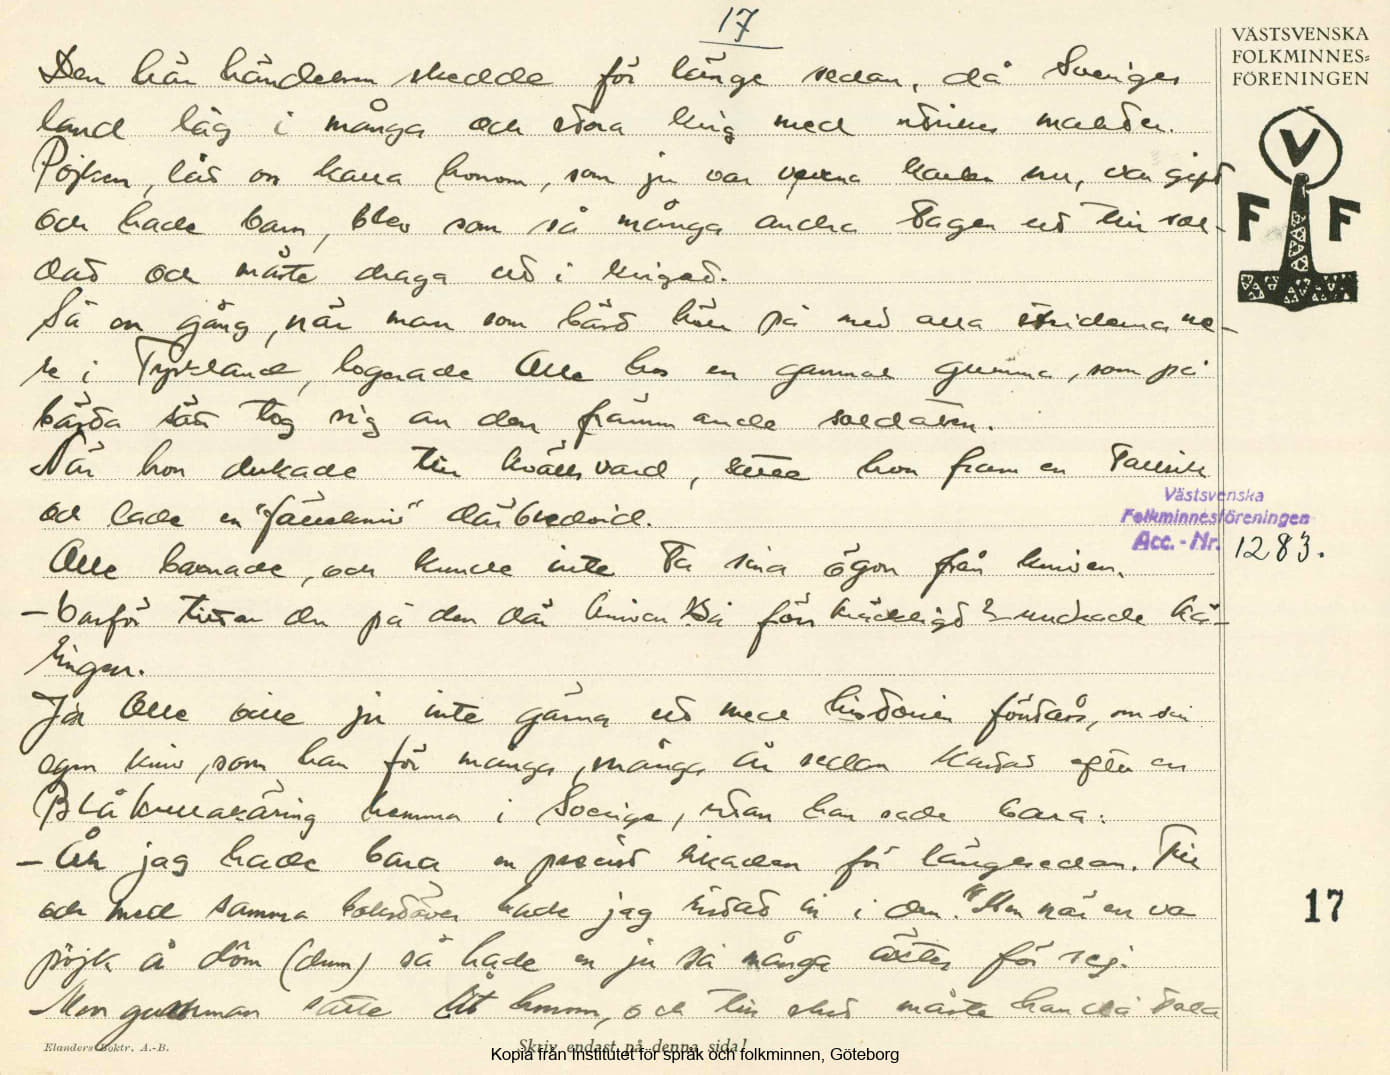 17
VÄSTSVENSKA
FOLKMINNES=
FÖRENINGEN
V
F F
Den här händelsen skedde för länge sedan, då Sveriges
land låg i många och stora krig med utrikes makter.
Pojken, låt oss kalla honom, som ju var vuxna karlen nu, var gift
och hade barn, blev som så många andra tagen ut till sol-
dat och måste draga ut i kriget.
Så en gång, när man som bäst höll på med alla striderna ne-
re i Tyskland, logerade Olle hos en gammal gumma, som på
bästa sätt tog sig an den främmande soldaten.
När hon dukade till kvällsvard, satte hon fram en tallrik
och lade en "fällekniv" därbredvid.
Olle baxnade, och kunde inte ta sina ögon från kniven.
– Varför tittar du på den där kniven så förskräckligt? undrade kä-
ringen.
Ja Olle ville ju inte gärna ut med historien förstås, om sin
egen kniv, som han för många, många år sedan kastat efter en
Blåkullakäring hemma i Sverige, utan han sade bara:
– Åh jag hade bara en precist likadan för längesedan. Till
och med samma bokstäver hade jag ristat in i den. Men när en va
pöjk å dôm (dum) så hade en ju så många äster för sej.
Men gumman satte åt honom, och till slut måste han då tala
Västsvenska
Folkminnesföreningen
Acc. - Nr. 1283.
17
Elanders Boktr. A.-B.
Skriv endast på denna sida!
Kopia från Institutet för språk och folkminnen, Göteborg